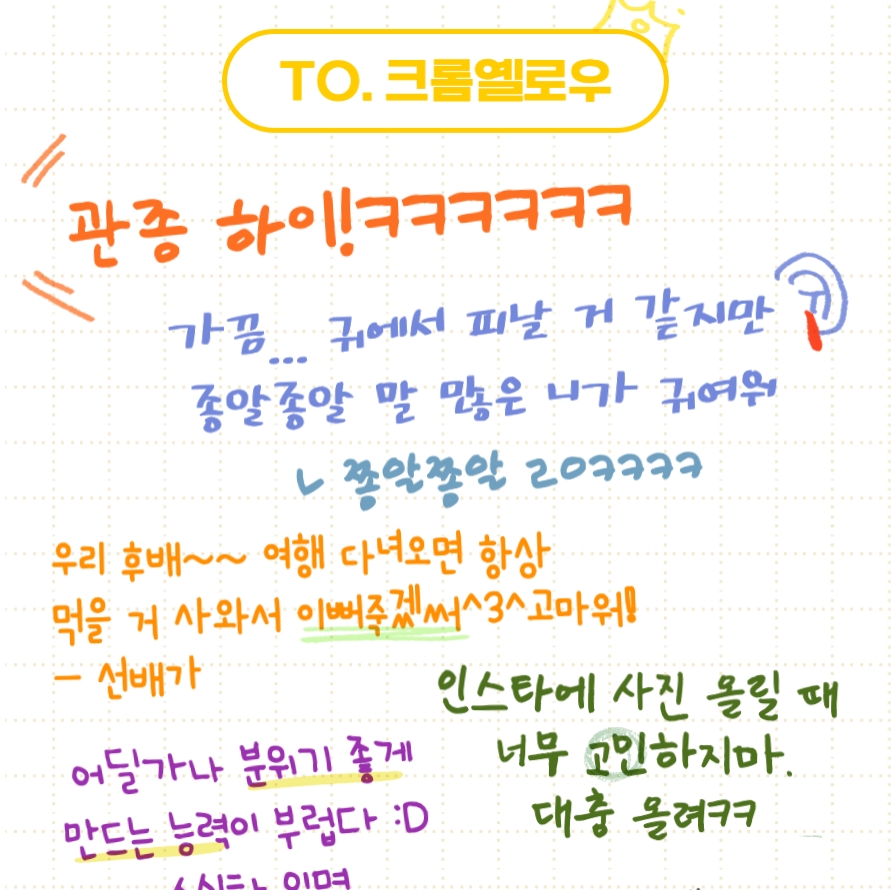 TO. 크롬옐로우
관종 하이!ㅋㅋㅋㅋㅋㅋ
가끔... 귀에서 피날 거 같지만
종알종알 말 많은 니가 귀여워
ㄴ 쫑알쫑알 ㄹㅇㅋㅋㅋㅋ
우리 후배~~ 여행 다녀오면 항상
먹을 거 사와서 이뻐주겠써^3^고마워!
- 선배가
인스타에 사진 올릴 때
너무 고민하지마.
대충 올려ㅋㅋ
어딜가나 분위기 좋게
만드는 능력이 부럽다 :D